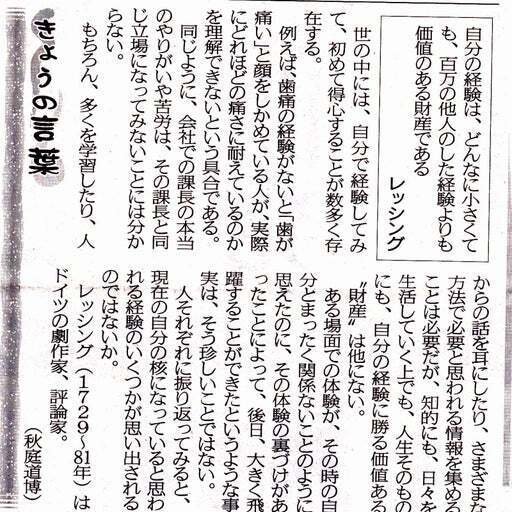 きょうの言葉
自分の経験は、どんなに小さくて
も、百万の他人のした経験よりも
価値のある財産である
レッシング
世の中には、自分で経験してみ
て、初めて得心することが数多く存
在する。
例えば、歯痛の経験がないと「歯が
痛い」と顔をしかめている人が、実際
にどれほどの痛さに耐えているのか
を理解できないという具合である。
同じように、会社での課長の本当
のやりがいや苦労は、その課長と同
じ立場になってみないことには分か
らない。
もちろん、多くを学習したり、人
からの話を耳にしたり、さまざまな
方法で必要と思われる情報を集める
ことは必要だが、知的にも、日々を
生活していく上でも、人生そのもの
にも、自分の経験に勝る価値ある
〝財産〟は他にない。
ある場面での体験が、その時の自
分とまったく関係ないことのように
思えたのに、その体験の裏づけがあ
ったことによって、後日、大きく飛
躍することができたというような事
実は、そう珍しいことではない。
人それぞれに振り返ってみると、
現在の自分の核になっていると思わ
れる経験のいくつかが思い出される
のではないか。
レッシング(1729〜81年)は
ドイツの劇作家、評論家。
(秋庭道博)